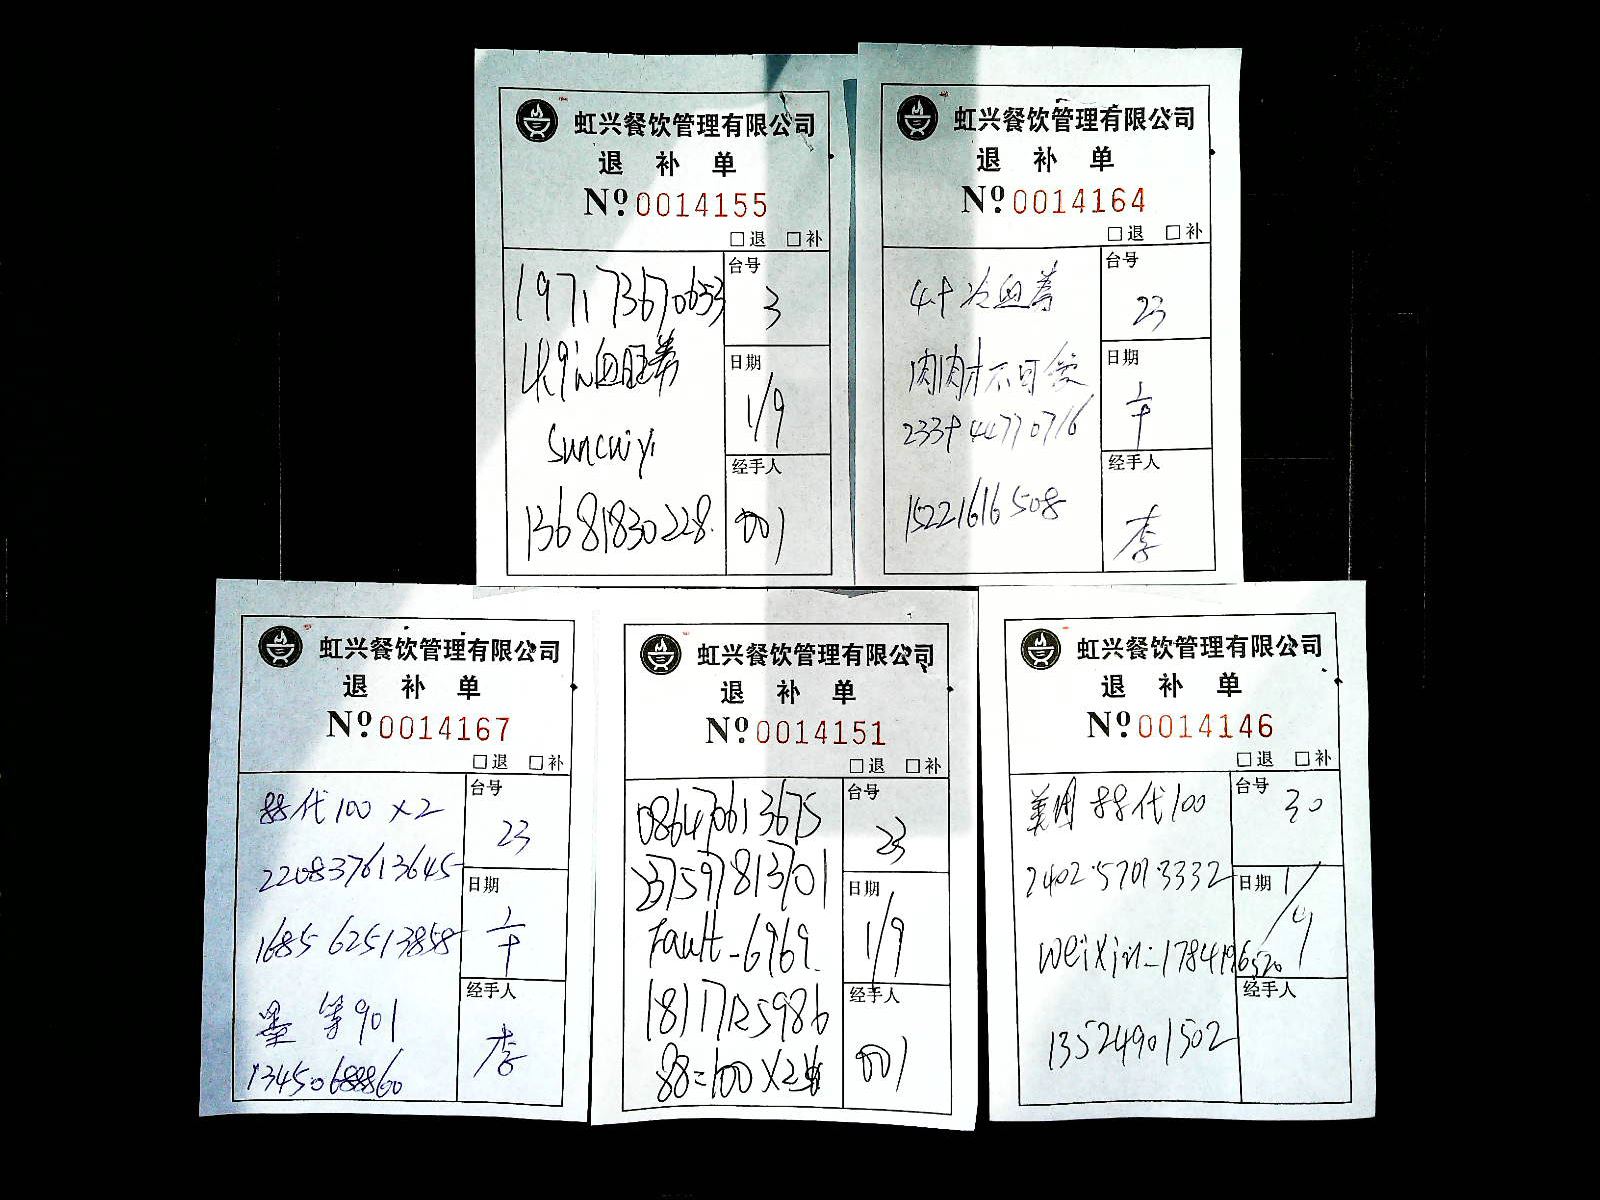 虹兴餐饮管理有限公司
退 补 单
Nº 0014155
□退 □补
台号
3
197173670633
4.9 血旺券
suncuiyi
13681830228.
日期
1/9
经手人
001
虹兴餐饮管理有限公司
退 补 单
Nº 0014164
□退 □补
台号
23
肉肉才不可爱
233944770716
15221616508
日期
经手人
李
虹兴餐饮管理有限公司
退 补 单
Nº 0014167
□退 □补
台号
23
88代100 ×2
220837613645
1685 62513858
901
13450688860
日期
经手人
李
虹兴餐饮管理有限公司
退 补 单
Nº 0014151
□退 □补
台号
23
086470613675
237597813701
Fault-6969.
18117125986
88=100×2
日期
1/9
经手人
001
虹兴餐饮管理有限公司
退 补 单
Nº 0014146
□退 □补
台号
30
美团 88代100
2402 5701 3332
weixin-1784196520
13524901502
日期
1/9
经手人